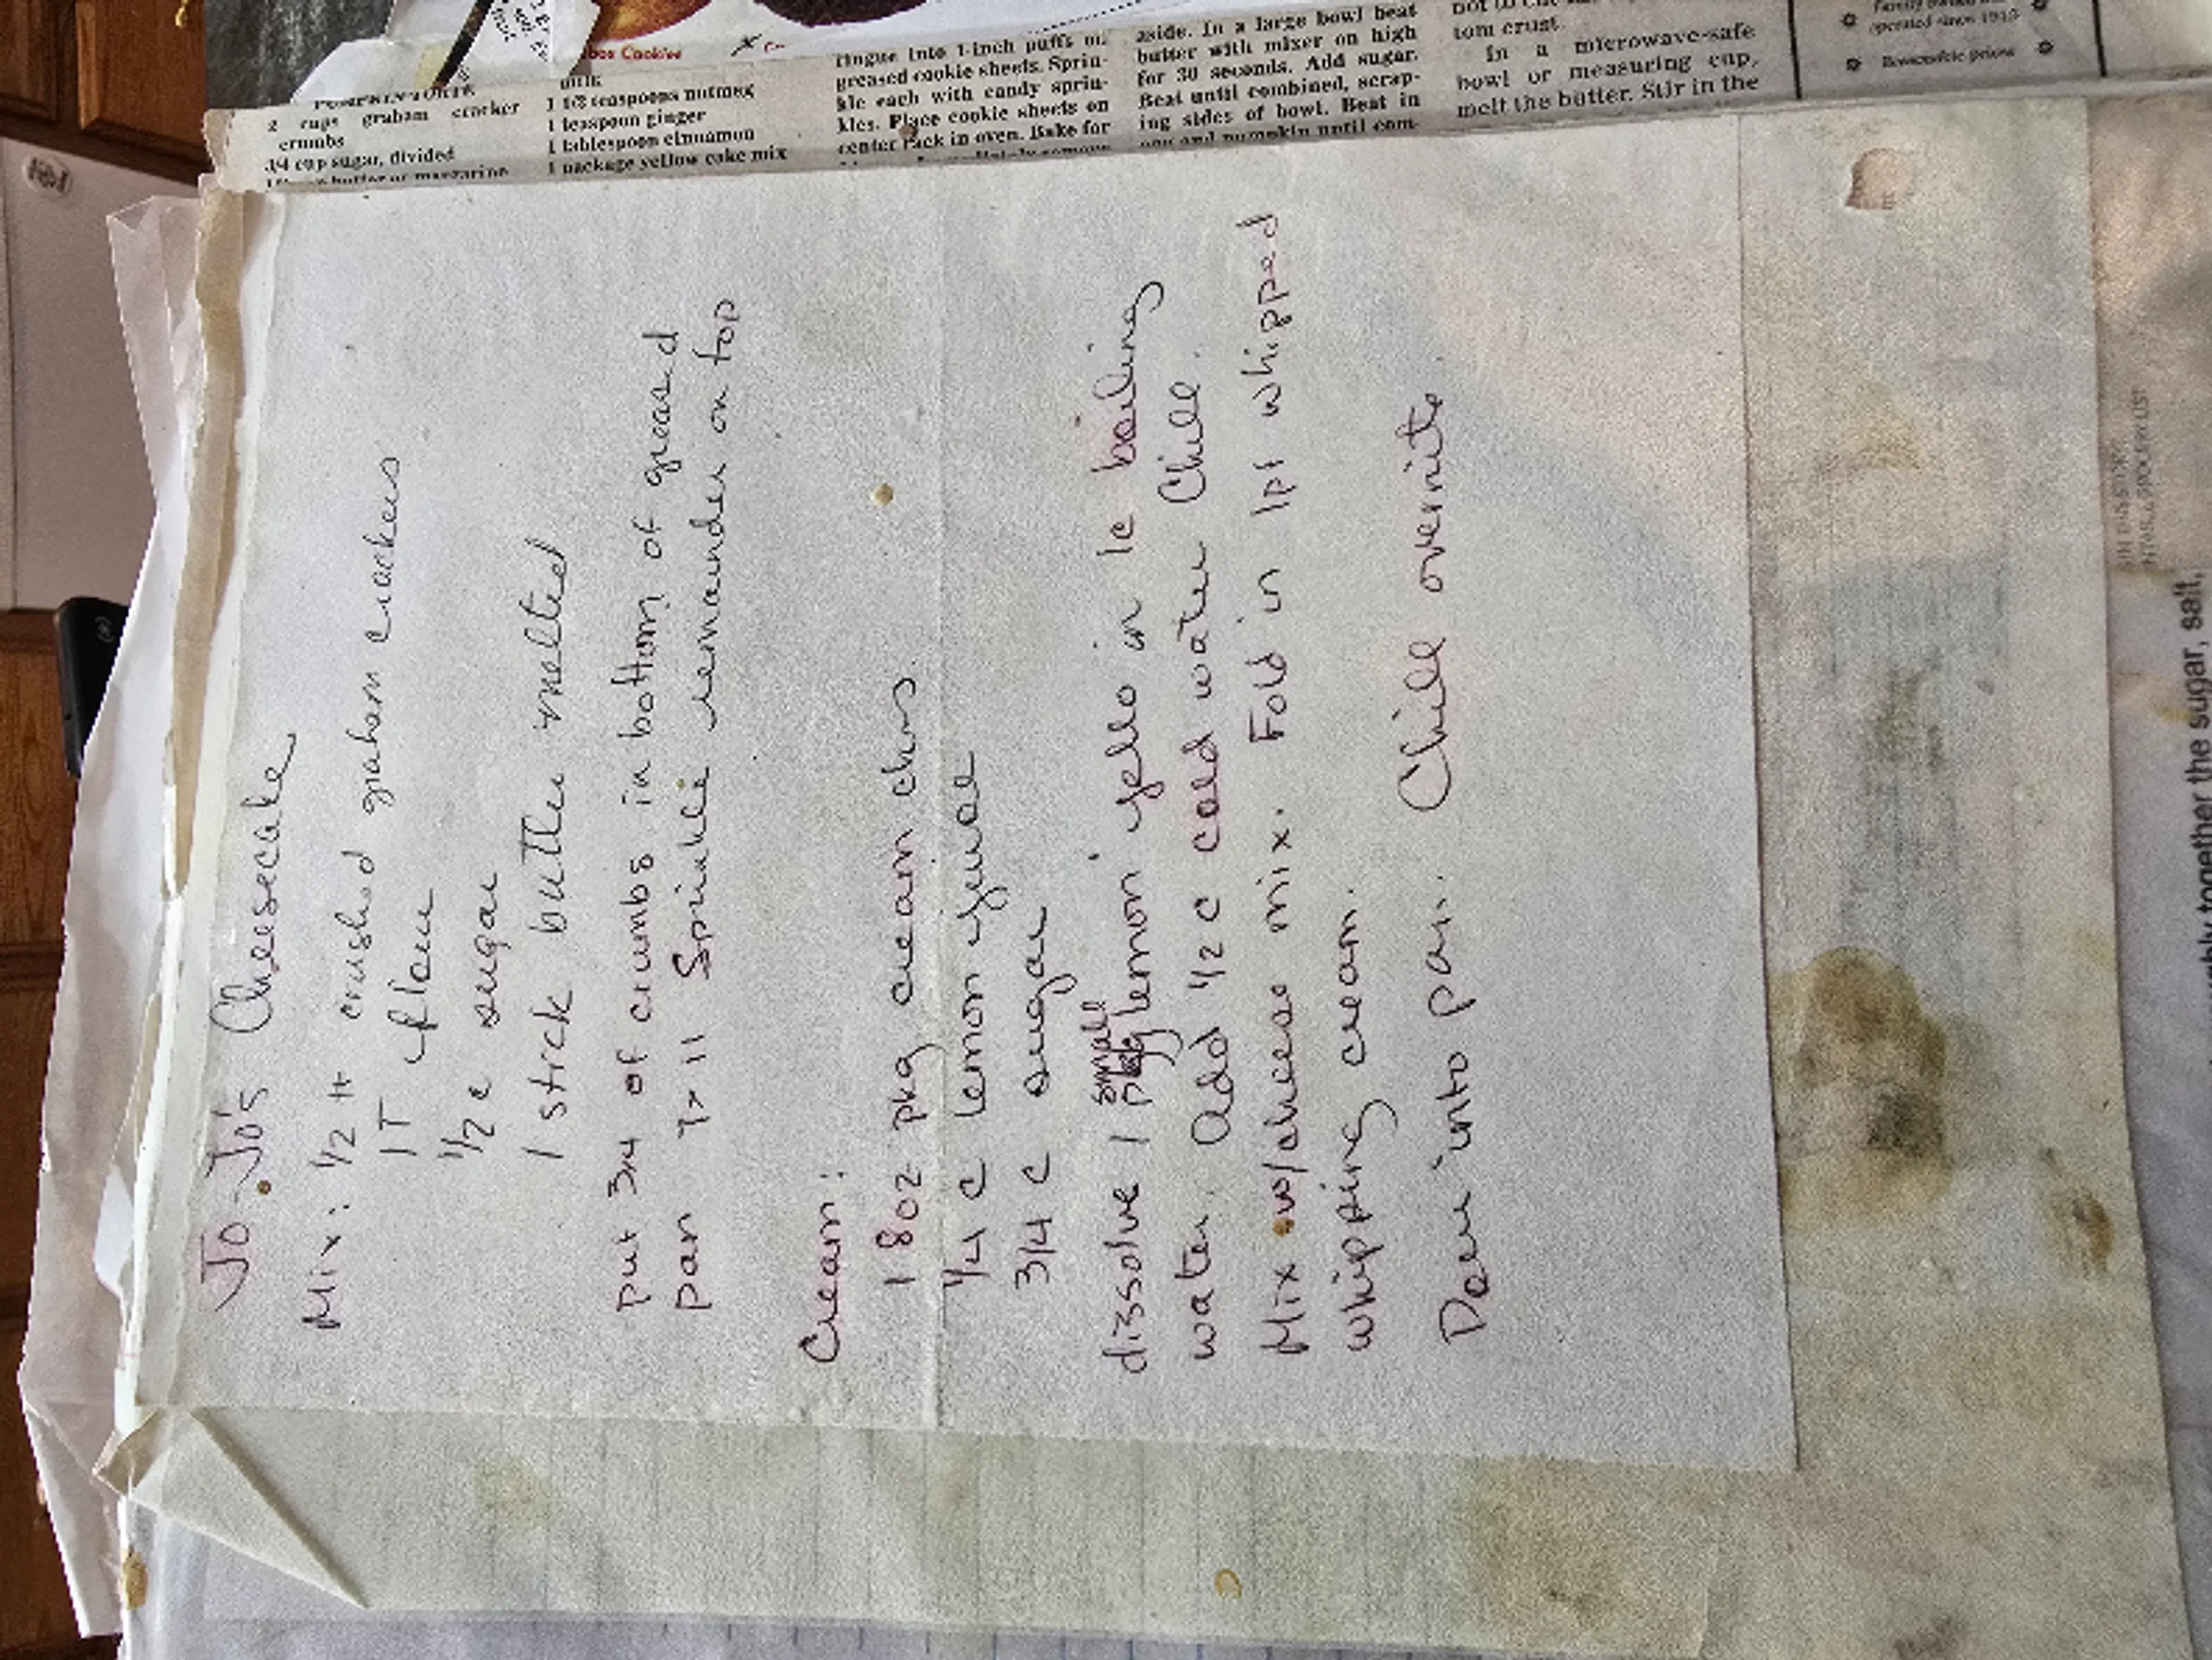 Jo-Jo's Cheesecake
Mix: 1/2 # crushed graham crackers
1T flour
1/2 c sugar
1 stick butter melted
put 3/4 of crumbs in bottom of greased
pan 7x11 Sprinkle remainder on top
Cream:
1 8oz pkg cream chees
1/4 c lemon juice
3/4 c sugar
small
dissolve 1 pkg lemon jello in 1c boiling
water. Add 1/2 c cold water Chill.
Mix w/cheese mix. Fold in 1pt whipped
whipping cream.
Pour into pan. Chill overnite
box Cookies
PUMPKIN TORTE
2 cups graham cracker
crumbs
3/4 cup sugar, divided
butter or margarine
milk
1 1/2 teaspoons nutmeg
1 teaspoon ginger
1 tablespoon cinnamon
1 package yellow cake mix
ringue into 1-inch puffs on
greased cookie sheets. Sprin-
kle each with candy sprin-
kles. Place cookie sheets on
center rack in oven. Bake for
aside. In a large bowl beat
butter with mixer on high
for 30 seconds. Add sugar.
Beat until combined, scrap-
ing sides of bowl. Beat in
egg and pumpkin until com-
tom crust.
In a microwave-safe
bowl or measuring cup,
melt the butter. Stir in the
operated since 1915
Reasonable prices
IN THIS STORY
together the sugar, salt,